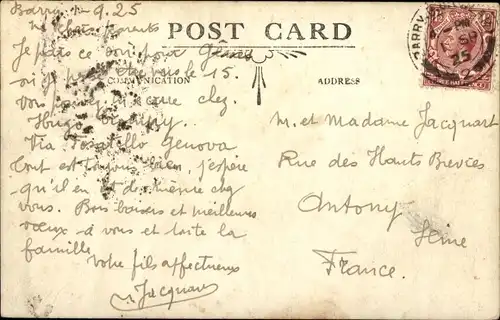 Barry 9.25
POST CARD
chers parents
Je pars ce soir pour Genes
où je serai vers le 15.
COMMUNICATION
ADDRESS
Vous pouvez m'écrire chez
Hugo
Via Genova
Tout est toujours bien, j'espère
qu'il en est de même chez
vous. Bons baisers et meilleures
vœux à vous et toute la
famille
Votre fils affectueux
Jacquart
BARRY
25
M. et Madame Jacquart
Rue des Hautes Brevces
Antony
Seine
France.